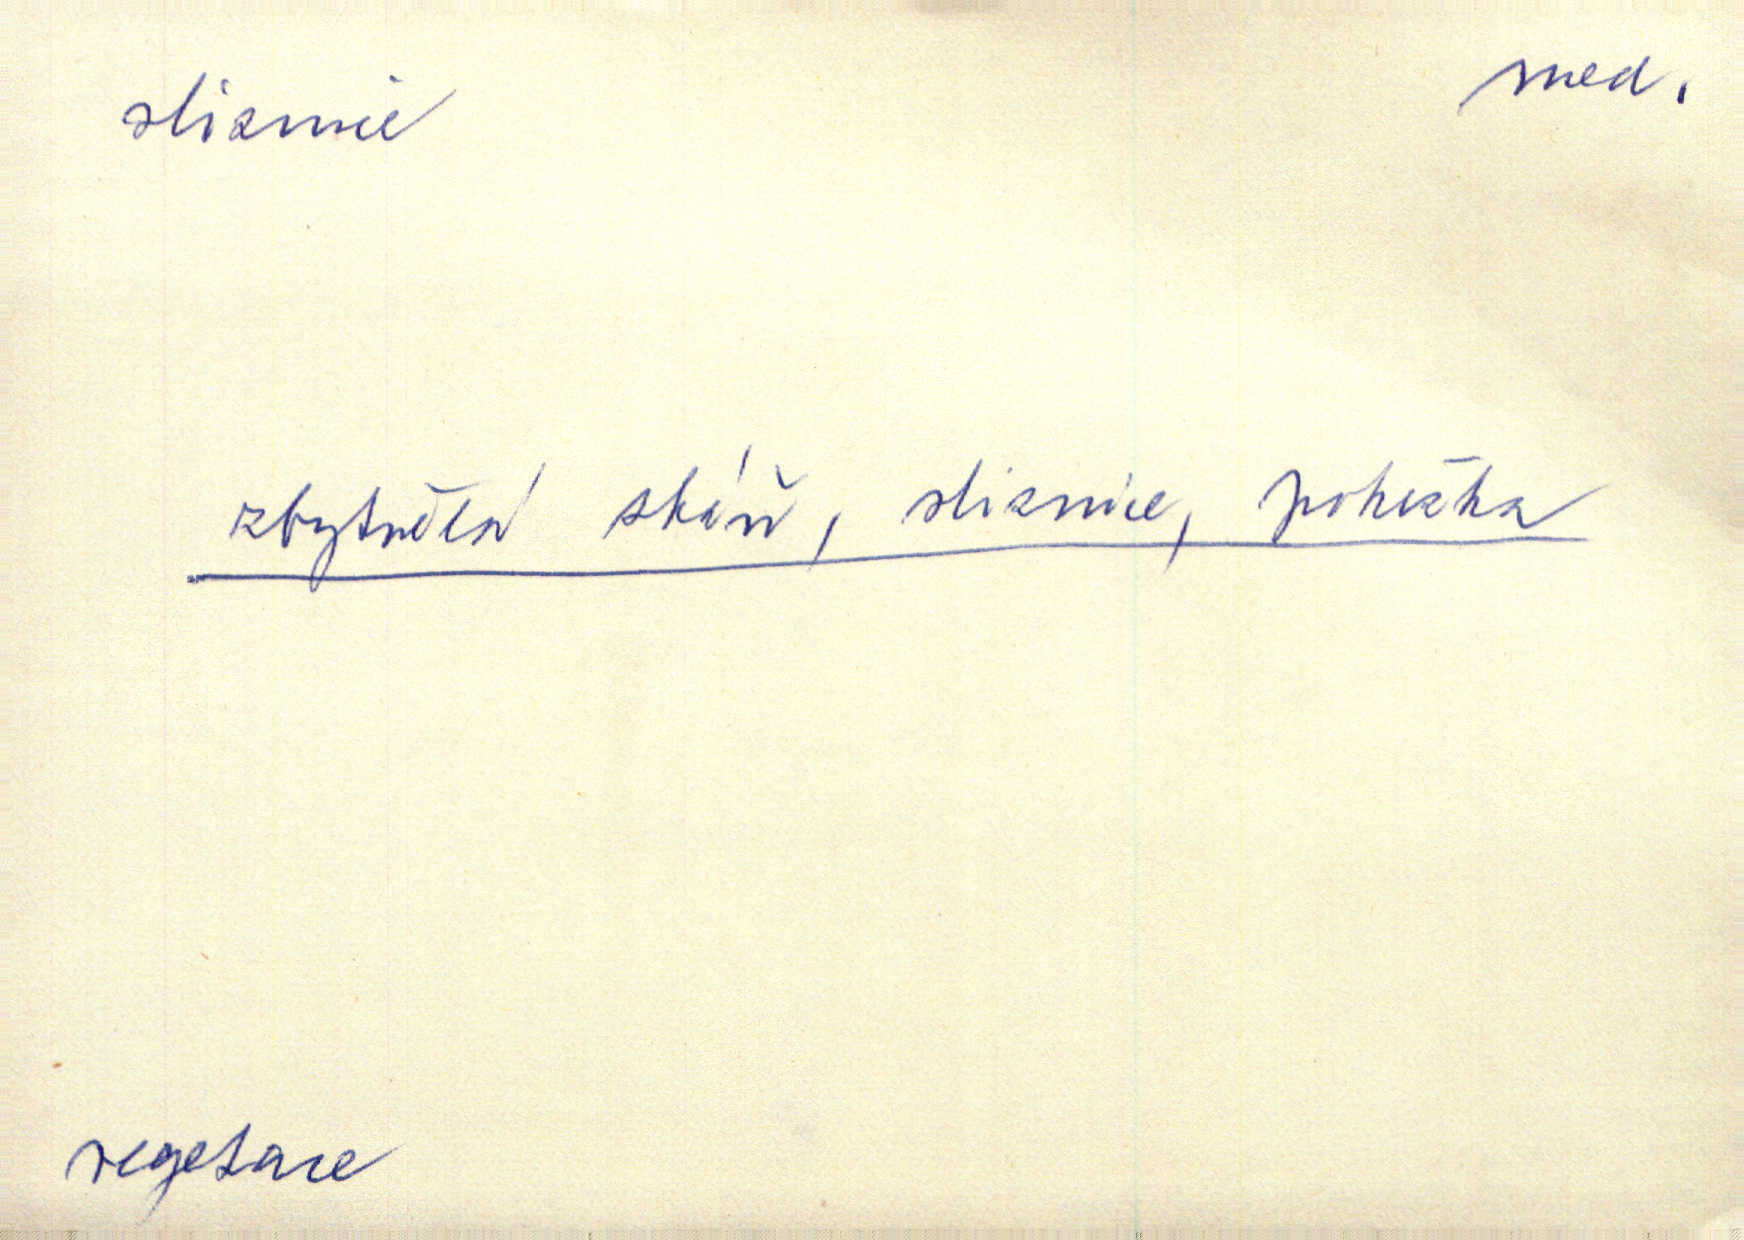 sliznice med.
zbytnělá tkáň, sliznice, pokožka
vegetace